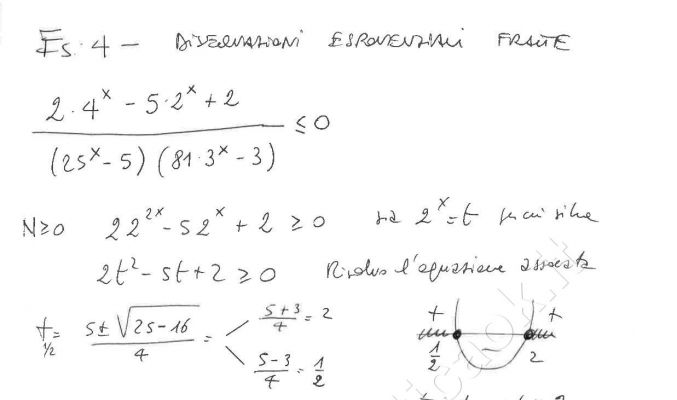 Es. 4 - DISEQUAZIONI ESPONENZIALI FRATTE
(2·4^x - 5·2^x + 2) / ((25^x - 5)(81·3^x - 3)) ≤ 0
N≥0 2 2^{2x} - 5 2^x + 2 ≥ 0 sia 2^x = t per cui si ha
2t² - 5t + 2 ≥ 0 Risolvo l'equazione associata
t_{1/2} = (5 ± √(25-16)) / 4 =
(5+3)/4 = 2
(5-3)/4 = 1/2
+ - +
1/2 2